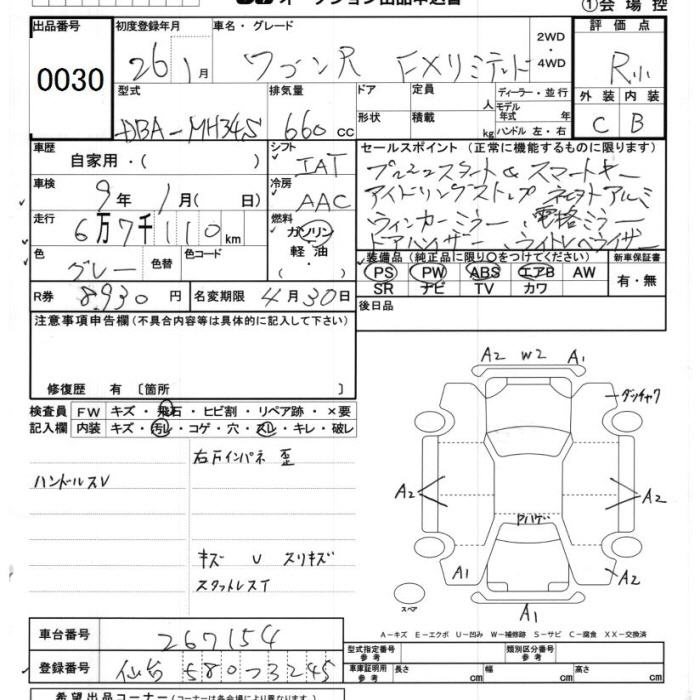 オークション出品申込書
①会場控
出品番号
0030
初度登録年月
26 1月
車名・グレード
ワゴンR FXリミテッド
2WD
・
4WD
評価点
R小
型式
DBA-MH34S
排気量
660 cc
ドア
形状
定員 人
積載 kg
ディーラー・並行
モデル年式 年
ハンドル 左・右
外装 内装
C B
車歴
自家用・( )
シフト
IAT
セールスポイント (正常に機能するものに限ります)
プッシュスタート& スマートキー
アイドリングストップ
ウィンカーミラー 電格ミラー
ドアバイザー ライトレベライザー
車検
9年 1月( 日)
冷房
AAC
走行
6万7千110km
燃料
ガソリン
軽油
・
色
グレー
色替
色コード
装備品 (純正品に限り○をつけてください)
PS PW ABS エアB AW
SR ナビ TV カワ
新車保証書
有・無
R券 8,930 円
名変期限 4月30日
後日品
注意事項申告欄(不具合内容等は具体的に記入して下さい)
修復歴 有 〔箇所 〕
検査員記入欄
FW キズ・飛石・ヒビ割・リペア跡・×要
内装 キズ・汚レ・コゲ・穴・スレ・キレ・破レ
ハンドルスV
右Fインパネ 歪
キズ U スリキズ
スタットレスT
A2 W2 A1
ダッチャク
A2
A2
Pハゲ
A1
A2
スペア
A1
A-キズ E-エクボ U-凹み W-補修跡 S-サビ C-腐食 XX-交換済
車台番号
267154
登録番号
仙台 580 ツ 3245
型式指定番号
参考
類別区分番号
参考
車庫証明用
参考
長さ cm
幅 cm
高さ cm
希望出品コーナー